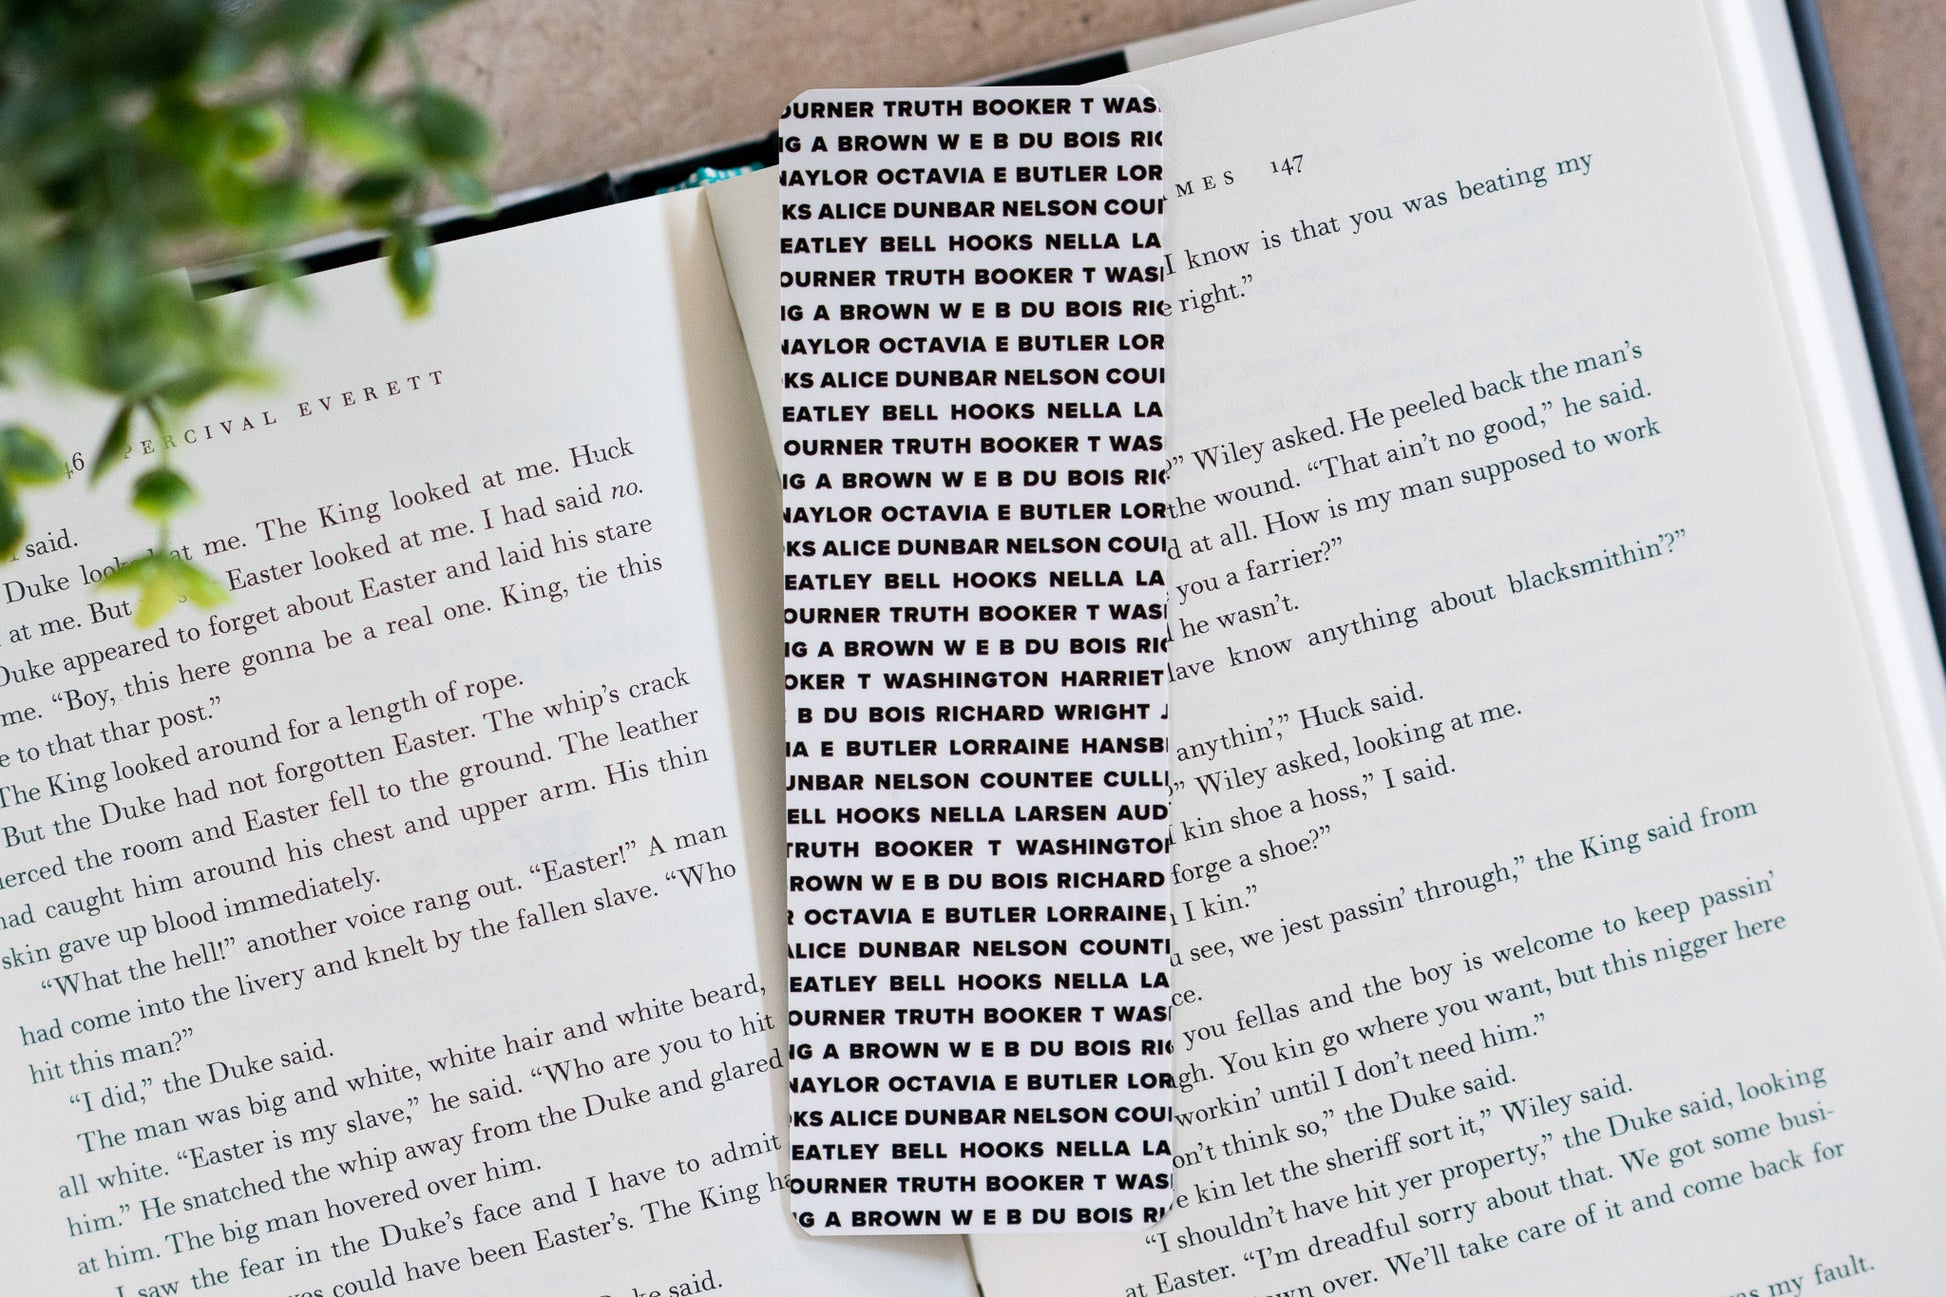 PERCIVAL EVERETT
said.
Duke at me. The King looked at me. Huck
at me. But Easter looked at me. I had said no.
Duke appeared to forget about Easter and laid his stare
me. “Boy, this here gonna be a real one. King, tie this
to that thar post.”
The King looked around for a length of rope.
But the Duke had not forgotten Easter. The whip’s crack
the room and Easter fell to the ground. The leather
had caught him around his chest and upper arm. His thin
skin gave up blood immediately.
“What the hell!” another voice rang out. “Easter!” A man
had come into the livery and knelt by the fallen slave. “Who
hit this man?”
“I did,” the Duke said.
The man was big and white, white hair and white beard,
all white. “Easter is my slave,” he said. “Who are you to hit
him.” He snatched the whip away from the Duke and glared
at him. The big man hovered over him.
I saw the fear in the Duke’s face and I have to admit
could have been Easter’s. The King
said.
OURNER TRUTH BOOKER T WAS
G A BROWN W E B DU BOIS RIC
NAYLOR OCTAVIA E BUTLER LOR
KS ALICE DUNBAR NELSON COU
EATLEY BELL HOOKS NELLA LA
OURNER TRUTH BOOKER T WAS
G A BROWN W E B DU BOIS RIC
NAYLOR OCTAVIA E BUTLER LOR
KS ALICE DUNBAR NELSON COU
EATLEY BELL HOOKS NELLA LA
OURNER TRUTH BOOKER T WAS
G A BROWN W E B DU BOIS RIC
NAYLOR OCTAVIA E BUTLER LOR
KS ALICE DUNBAR NELSON COU
EATLEY BELL HOOKS NELLA LA
OURNER TRUTH BOOKER T WAS
G A BROWN W E B DU BOIS RIC
OKER T WASHINGTON HARRIET
B DU BOIS RICHARD WRIGHT
A E BUTLER LORRAINE HANSB
UNBAR NELSON COUNTEE CULL
ELL HOOKS NELLA LARSEN AUD
TRUTH BOOKER T WASHINGTO
ROWN W E B DU BOIS RICHARD
R OCTAVIA E BUTLER LORRAINE
ALICE DUNBAR NELSON COUNT
EATLEY BELL HOOKS NELLA LA
OURNER TRUTH BOOKER T WAS
G A BROWN W E B DU BOIS RIC
NAYLOR OCTAVIA E BUTLER LOR
KS ALICE DUNBAR NELSON COU
EATLEY BELL HOOKS NELLA LA
OURNER TRUTH BOOKER T WAS
G A BROWN W E B DU BOIS RI
MES 147
I know is that you was beating my
right.”
Wiley asked. He peeled back the man’s
the wound. “That ain’t no good,” he said.
at all. How is my man supposed to work
you a farrier?”
he wasn’t.
know anything about blacksmithin’?”
anythin’,” Huck said.
Wiley asked, looking at me.
kin shoe a hoss,” I said.
forge a shoe?”
I kin.”
see, we jest passin’ through,” the King said from
you fellas and the boy is welcome to keep passin’
You kin go where you want, but this nigger here
workin’ until I don’t need him.”
think so,” the Duke said.
kin let the sheriff sort it,” Wiley said.
“I shouldn’t have hit yer property,” the Duke said, looking
at Easter. “I’m dreadful sorry about that. We got some busi-
over. We’ll take care of it and come back for
my fault.